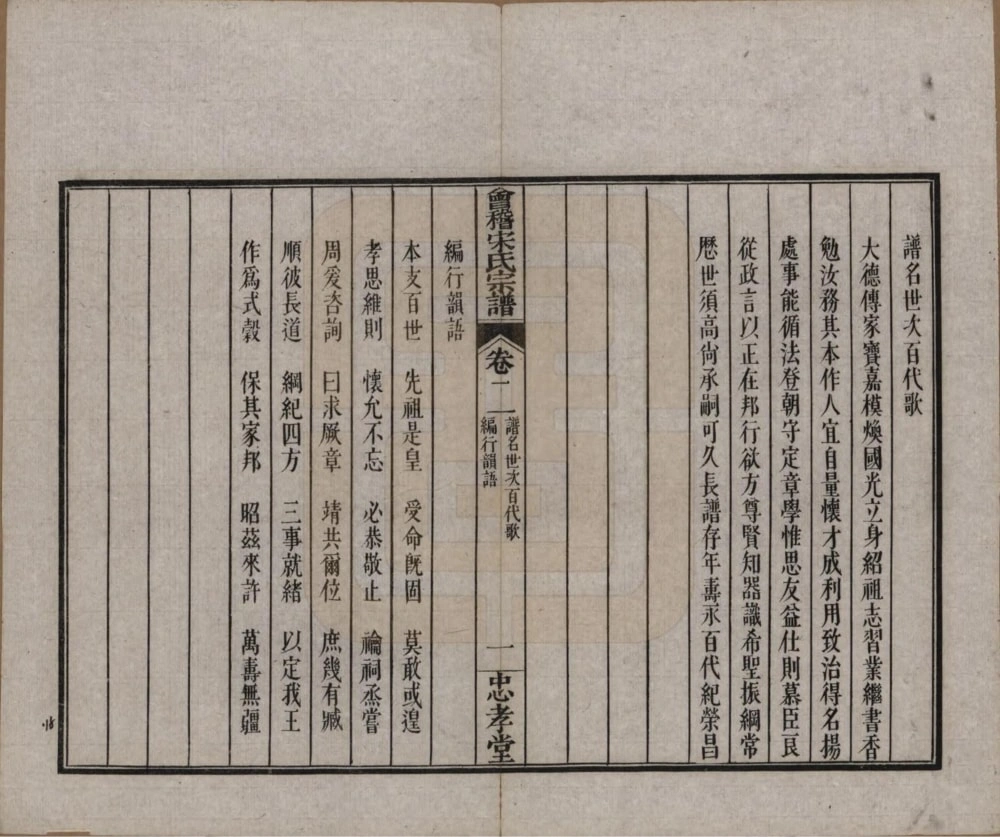 譜名世次百代歌
大德傳家寶嘉模煥國光立身紹祖志習業繼書香
勉汝務其本作人宜自量懷才成利用致治得名揚
處事能循法登朝守定章學惟思友益仕則慕臣良
從政言以正在邦行欲方尊賢知器識希聖振綱常
歷世須高尚承嗣可久長譜存年壽永百代紀榮昌
會稽宋氏宗譜
卷二
譜名世次百代歌
編行韻語
一
忠孝堂
編行韻語
本支百世 先祖是皇 受命旣固 莫敢或遑
孝思維則 懷允不忘 必恭敬止 禴祠烝嘗
周爰咨詢 曰求厥章 靖共爾位 庶幾有臧
順彼長道 綱紀四方 三事就緒 以定我王
作爲式穀 保其家邦 昭茲來許 萬壽無疆